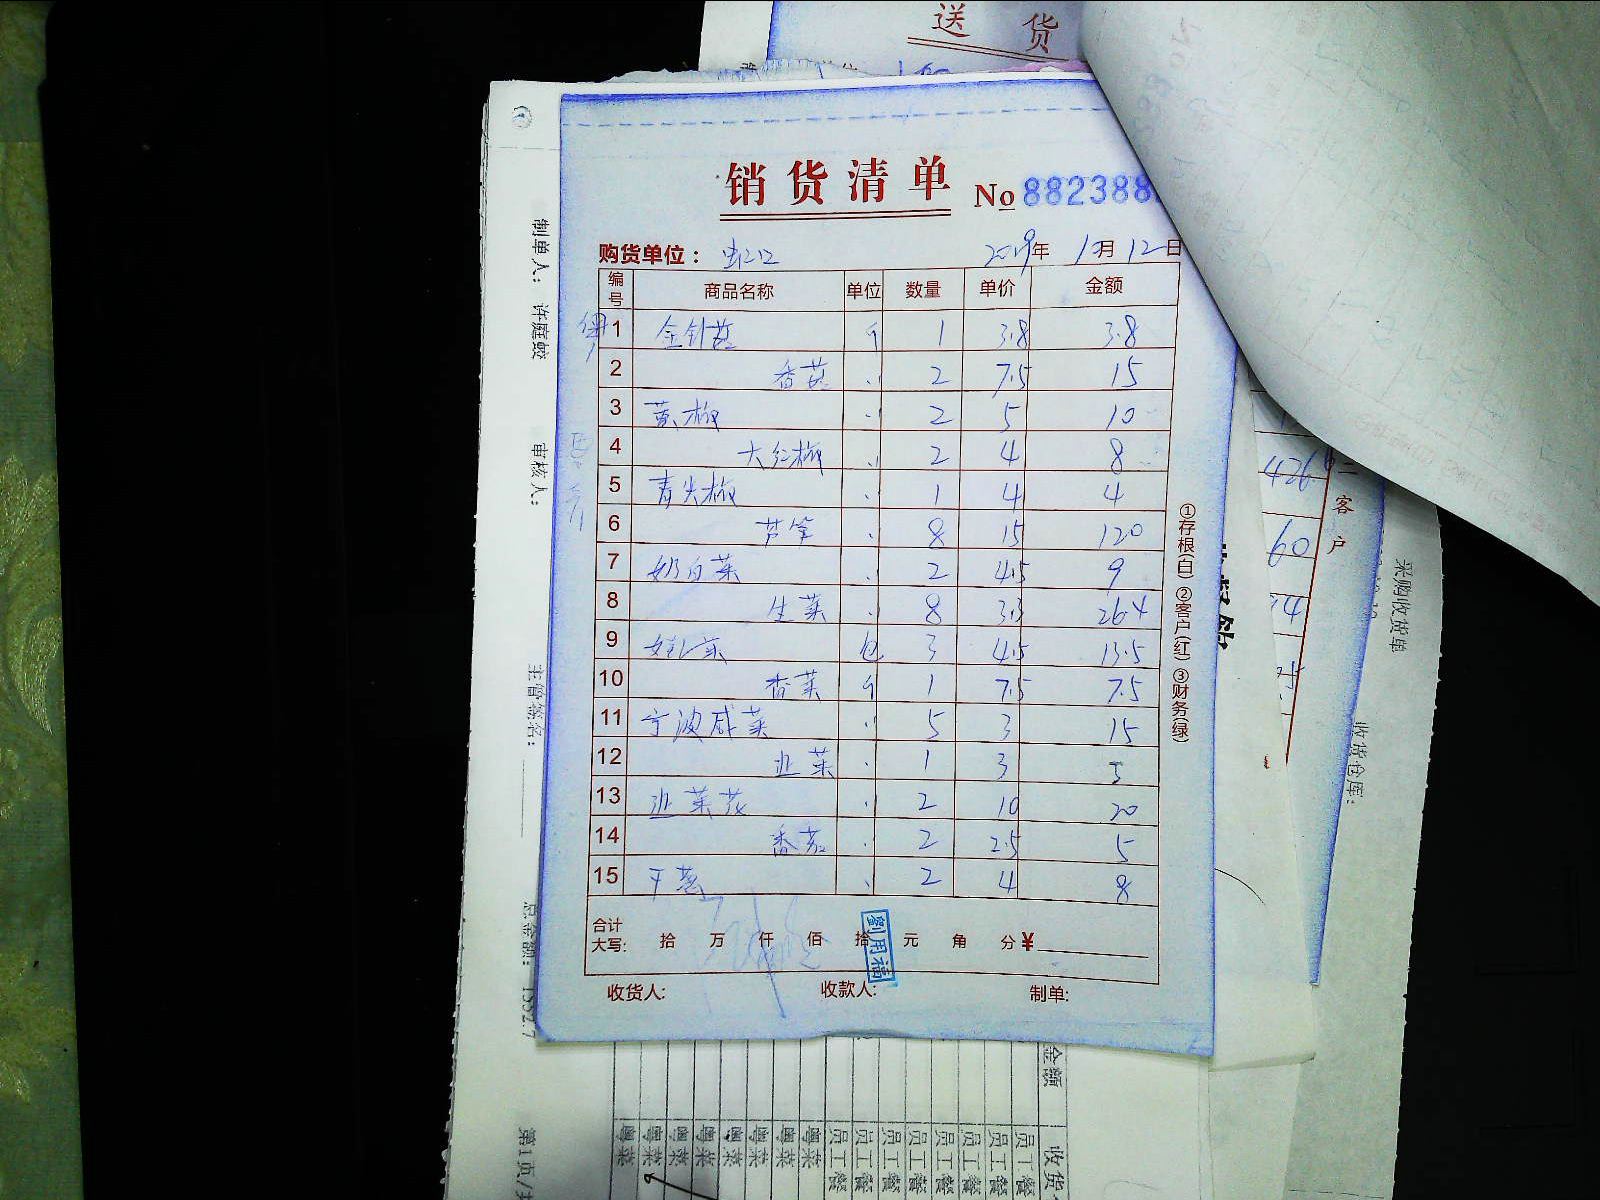 送 货
销货清单 No 882388
购货单位： 虹口 2019年 10月 12日
编号 商品名称 单位 数量 单价 金额
1 金针菇 斤 1 3.8 3.8
2 香菇 〃 2 7.5 15
3 黄椒 〃 2 5 10
4 大红椒 〃 2 4 8
5 青尖椒 〃 1 4 4
6 芦笋 〃 8 15 120
7 奶白菜 〃 2 4.5 9
8 生菜 〃 8 3.3 26.4
9 娃娃菜 包 3 4.5 13.5
10 香菜 斤 1 7.5 7.5
11 宁波咸菜 〃 5 3 15
12 韭菜 〃 1 3 3
13 韭菜花 〃 2 10 20
14 番茄 〃 2 2.5 5
15 〃 2 4 8
合计大写: 拾 万 仟 佰 拾 元 角 分 ¥
劉用福
收货人: 收款人: 制单:
①存根(白) ②客户(红) ③财务(绿)
制单人： 许庭蛟
审核人：
主管签名：
总金额： 1552.7
第1页/
426
60
二客户
采购收货单
收货仓库：
金额
收货
员工餐 员工餐 员工餐 员工餐 员工餐 员工餐 员工餐 员工餐
粤菜 粤菜 粤菜 粤菜 粤菜 粤菜 粤菜 粤菜